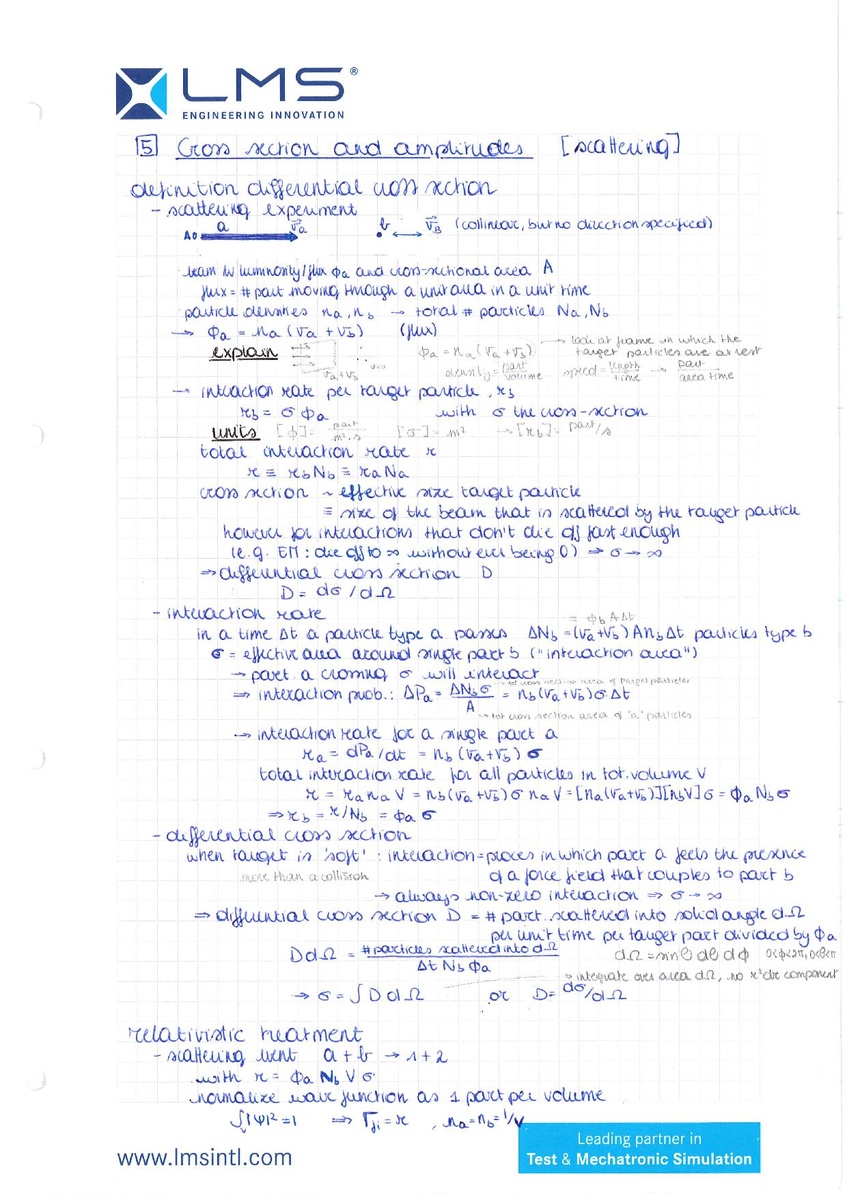 LMS®
ENGINEERING INNOVATION
5 Cross section and amplitudes [scattering]
definition differential cross section
- scattering experiment
a v⃗a b v⃗B (collinear, but no direction specified)
A
beam w/ luminosity/flux ϕa and cross-sectional area A
flux = # part moving through a unit area in a unit time
particle densities na, nb → total # particles Na, Nb
→ ϕa = na (va + vb) (flux)
→ look at frame in which the
explain ϕa = na (va + vb) target particles are at rest
va + vb v=0 density = part/volume speed = length/time → part/area time
→ interaction rate per target particle, rb
rb = σ ϕa with σ the cross-section
units [ϕ] = part/m²·s [σ] = m² → [rb] = part/s
total interaction rate r
r ≡ rb Nb ≡ ra Na
cross section ~ effective size target particle
≡ size of the beam that is scattered by the target particle
however for interactions that don't die off fast enough
(e.g. EM: die off to ∞ without ever being 0) ⇒ σ → ∞
⇒ differential cross section D
D = dσ/dΩ
- interaction rate
= ϕb A Δt
in a time Δt a particle type a passes ΔNb = (va + vb) A nb Δt particles type b
σ = effective area around single part b ("interaction area")
→ part a crossing σ will interact
→ tot cross section area of target particles
⇒ interaction prob.: ΔPa = ΔNb σ / A = nb (va + vb) σ Δt
→ tot cross section area of "a" particles
→ interaction rate for a single part a
ra = dPa/dt = nb (va + vb) σ
total interaction rate for all particles in tot. volume V
r = ra na V = nb (va + vb) σ na V = [na (va + vb)] [nb V] σ = ϕa Nb σ
⇒ rb = r/Nb = ϕa σ
- differential cross section
when target is 'soft' : interaction = proces in which part a feels the presence
more than a collision of a force field that couples to part b
→ always non-zero interaction ⇒ σ → ∞
⇒ differential cross section D = # part. scattered into solid angle dΩ
per unit time per target part divided by ϕa
D dΩ = # particles scattered into dΩ / Δt Nb ϕa dΩ = sin θ dθ dϕ 0<ϕ<2π, 0<θ<π
→ integrate over area dΩ, no r² dr component
→ σ = ∫ D dΩ or D = dσ/dΩ
relativistic treatment
- scattering event a + b → 1 + 2
with r = ϕa Nb V σ
normalize wave function as 1 part per volume
∫|Ψ|² = 1 ⇒ Γfi = r , na = nb = 1/V
Leading partner in
www.lmsintl.com
Test & Mechatronic Simulation